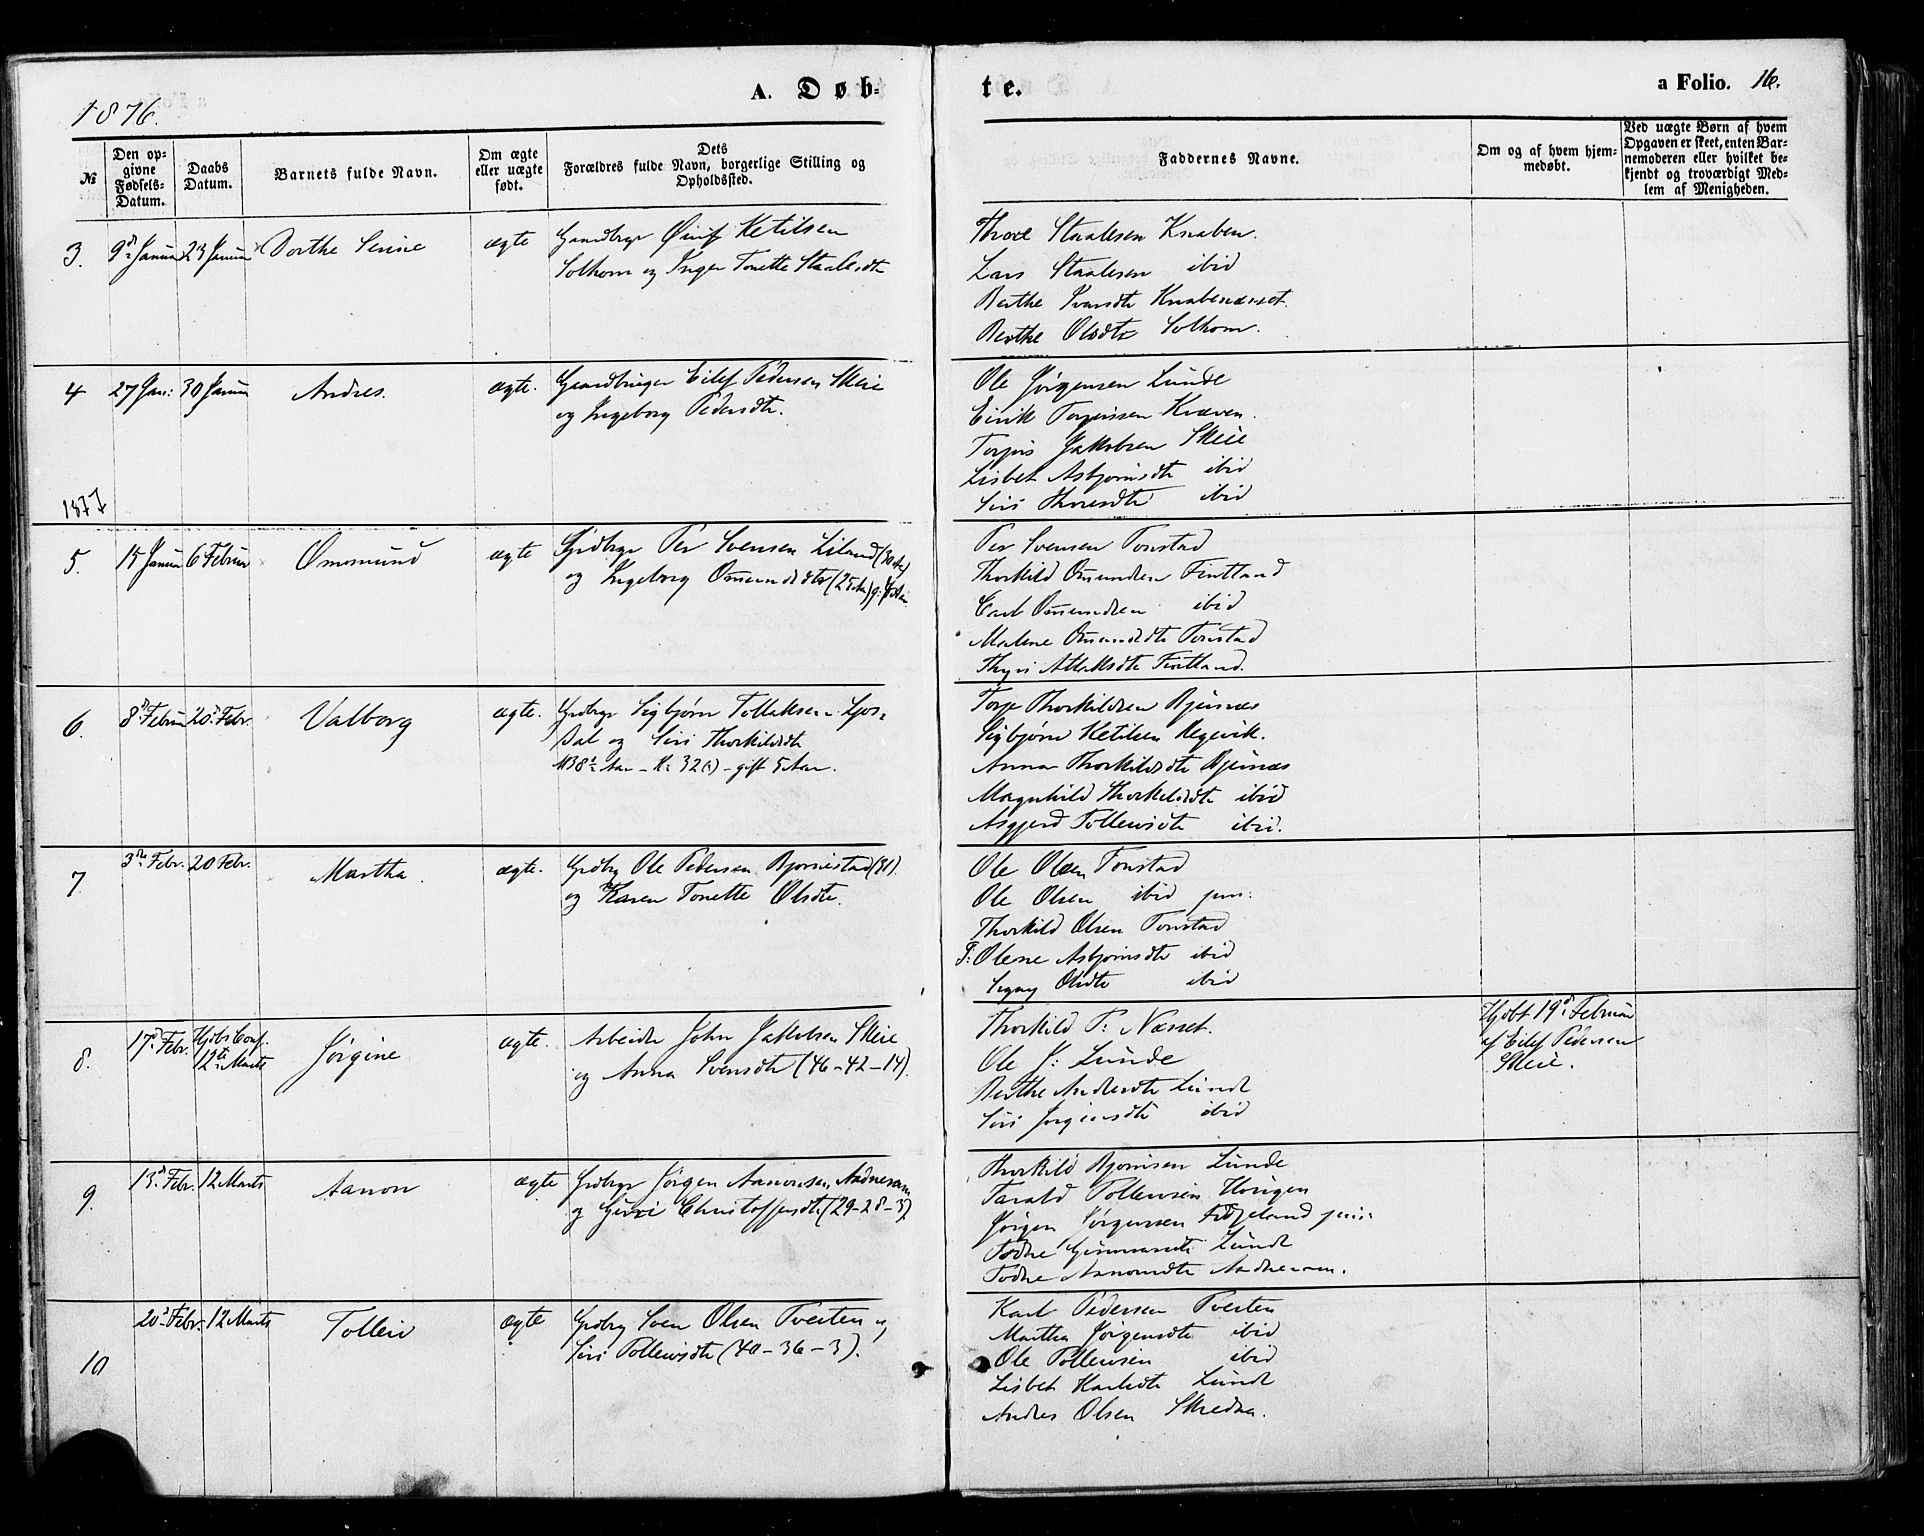 1876.
A. Døb-
№
Den opgivne Fødsels-Datum.
Daabs Datum.
Barnets fulde Navn.
Om ægte eller uægte født.
Dets Forældres fulde Navn, borgerlige Stilling og Opholdssted.
3. 9d Januar 23 Januar Dorthe Serine ægte Gaardbrgr Ketilsen
Solhom og Inger Tonette Staalesdtr
4 27 Jan: 30 Januar Andres. ægte. Gaardbruger Eilef Pedersen Skeie
og Ingeborg Pedersdtr.
1877
5. 15 Januar 6 Februar Omomund ægte Grdbrgr Per Svensen Liland (30 Aar)
og Ingeborg Omundsdtr (25 Aar)
6. 8d Februar 20d Febr. Valborg ægte. Grdbrgr Sigbjørn Tollaksen Ljos-
dal og Siri Thorkildsdtr
M 38½ Aar – K: 32(?) – gift 5 Aar.
7 3die Febr. 20 Febr. Martha. ægte. Grdbrg Ole Pedersen Bjørnestad (31).
og Karen Tonette Olsdtr.
8. 17d Febr. Hjdbs Conf. 12te Marts Jørgine ægte. Arbeider John Jakobsen Skeie
og Anna Svensdtr (46–42–14).
9. 13d Febr. 12 Marts Aanon ægte Grdbrgr Jørgen Aanonsen Aadneram
og Christoffersdtr (29–28–3)
10 20d Febr. 12 Marts Tolleiv ægte Grdbrg Sven Olsen Tveiten og
Siri Tolleivsdtr (40–36–3).
te.
a Folio. 16.
Faddernes Navne.
Om og af hvem hjemmedøbt.
Ved uægte Børn af hvem
Opgaven er skeet, enten Bar-
nemoderen eller hvilket be-
kjendt og troværdigt Med-
lem af Menigheden.
Thore Staalesen Knaben.
Lars Staalesen ibid
Berthe Ivarsdtr Knabenæset.
Berthe Olsdtr Solhom.
Ole Jørgensen Lunde
Eirik Torgeirssen Kvæven.
Torgeirs Jakobsen Skeie
Lisbet Asbjørnsdtr ibid
Siri Thoresdtr ibid
Per Svensen Tonstad
Thorkild Omundsen Fintland
Carl Omundsen ibid
Malene Omundsdtr Tonstad
Atlaksdtr Fintland.
Torje Thorkildsen Bjunes
Sigbjørn Ketilsen Regevik.
Anna Thorkildsdtr Bjunes
Magnhild Thorkildsdtr ibid
Asgjerd Tolleivsdtr ibid.
Ole Olsen Tonstad
Ole Olsen ibid jun:
Thorkild Olsen Tonstad
T: Olene Asbjørnsdtr ibid
Signy Olsdtr ibid
Thorkild T: Næset.
Ole J: Lunde
Berthe Andersdtr Lunde
Siri Jørgensdtr ibid
Hjdbt 19d Februar
af Eilef Pedersen
Skeie.
Thorkild Bjørnsen Lunde
Tarald Tolleivsen Hougen
Jørgen Jørgensen Fidjeland jun:
Todne Gunvarsdtr Lunde
Todne Aanonsdtr Aadneram.
Karl Pedersen Tveiten
Martha Jørgensdtr ibid
Ole Tolleivsen ibid
Lisbet Karlsdtr Lunde
Andres Olsen Skredaa.